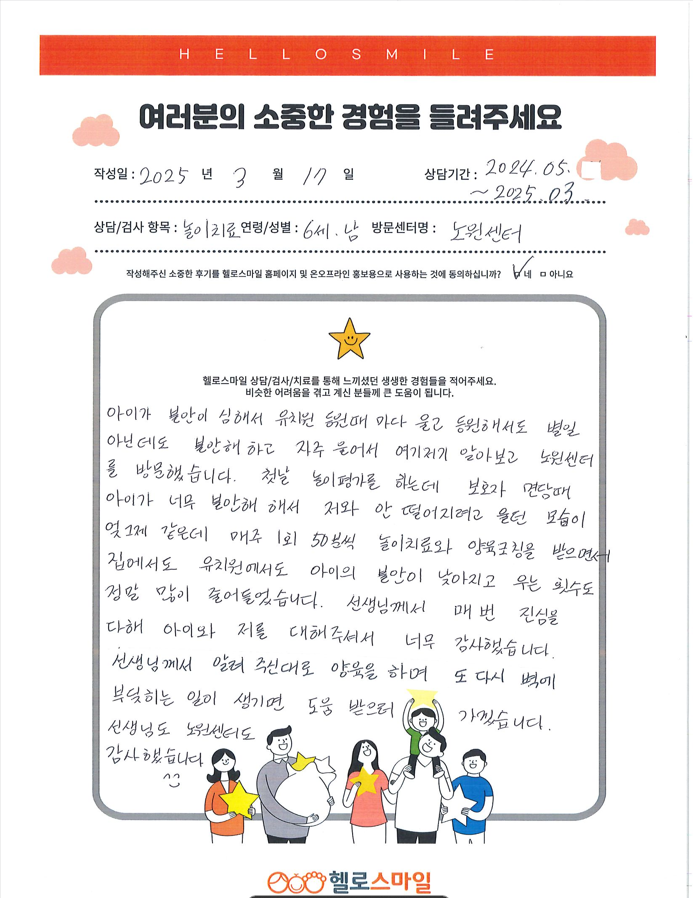 HELLOSMILE
여러분의 소중한 경험을 들려주세요
작성일 : 2025 년 3 월 17 일 상담기간 : 2024.05.
~ 2025.03.
상담/검사 항목 : 놀이치료 연령/성별 : 6세. 남 방문센터명 : 노원센터
작성해주신 소중한 후기를 헬로스마일 홈페이지 및 온오프라인 홍보용으로 사용하는 것에 동의하십니까? ☑ 네 ㅁ 아니요
헬로스마일 상담/검사/치료를 통해 느끼셨던 생생한 경험들을 적어주세요.
비슷한 어려움을 겪고 계신 분들께 큰 도움이 됩니다.
아이가 불안이 심해서 유치원 등원때 마다 울고 등원해서도 별일
아닌데도 불안해 하고 자주 울어서 여기저기 알아보고 노원센터
를 방문했습니다. 첫날 놀이평가를 하는데 보호자 면담때
아이가 너무 불안해 해서 저와 안 떨어지려고 울던 모습이
엊그제 같은데 매주 1회 50분씩 놀이치료와 양육코칭을 받으면서
집에서도 유치원에서도 아이의 불안이 낮아지고 우는 횟수도
정말 많이 줄어들었습니다. 선생님께서 매번 진심을
다해 아이와 저를 대해주셔서 너무 감사했습니다.
선생님께서 알려 주신대로 양육을 하며 또 다시 벽에
부딪히는 일이 생기면 도움 받으러 가겠습니다.
선생님도 노원센터도
감사했습니다
헬로스마일